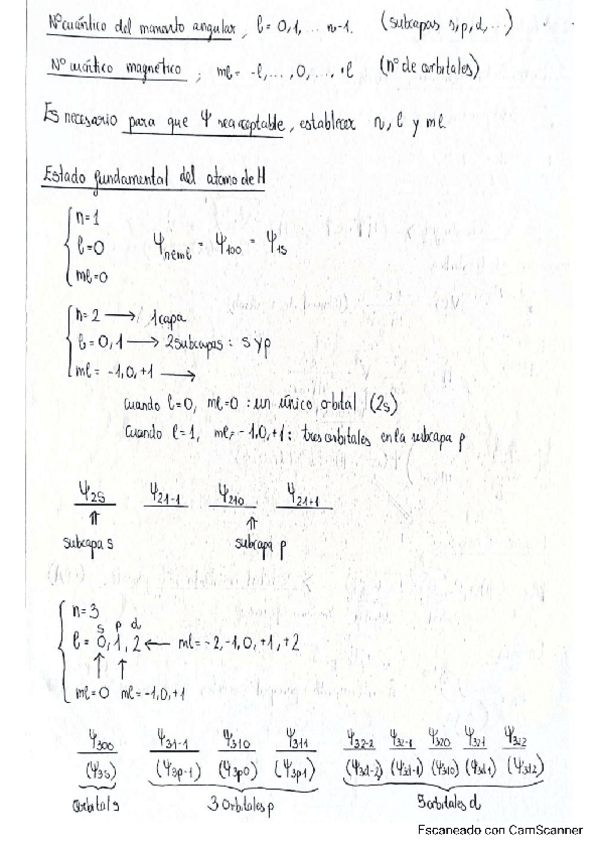 Nº cuántico del momento angular, l = 0,1, ... n-1. (subcapas s,p,d,...)
Nº cuático magnético ; ml = -l,...,0,...,+l (nº de orbitales)
Es necesario para que Ψ sea aceptable, establecer n, l y ml.
Estado fundamental del atomo de H
n=1
l=0 Ψnlml = Ψ100 = Ψ1s
ml=0
n=2 → 1 capa
l=0,1 → 2 subcapas: s y p
ml = -1,0,+1 →
cuando l=0, ml=0 : un único orbital (2s)
Cuando l=1, ml=-1,0,+1: tres orbitales en la subcapa p
Ψ2s Ψ21-1 Ψ210 Ψ21+1
⇑ ⇑
subcapa s subcapa p
n=3
s p d
l = 0,1,2 ← ml=-2,-1,0,+1,+2
↑ ↑
ml=0 ml=-1,0,+1
Ψ300 Ψ31-1 Ψ310 Ψ311 Ψ32-2 Ψ32-1 Ψ320 Ψ321 Ψ322
(Ψ3s) (Ψ3p-1) (Ψ3p0) (Ψ3p1) (Ψ3d-2) (Ψ3d-1) (Ψ3d0) (Ψ3d1) (Ψ3d2)
orbital s 3 Orbitales p 5 orbitales d
Escaneado con CamScanner